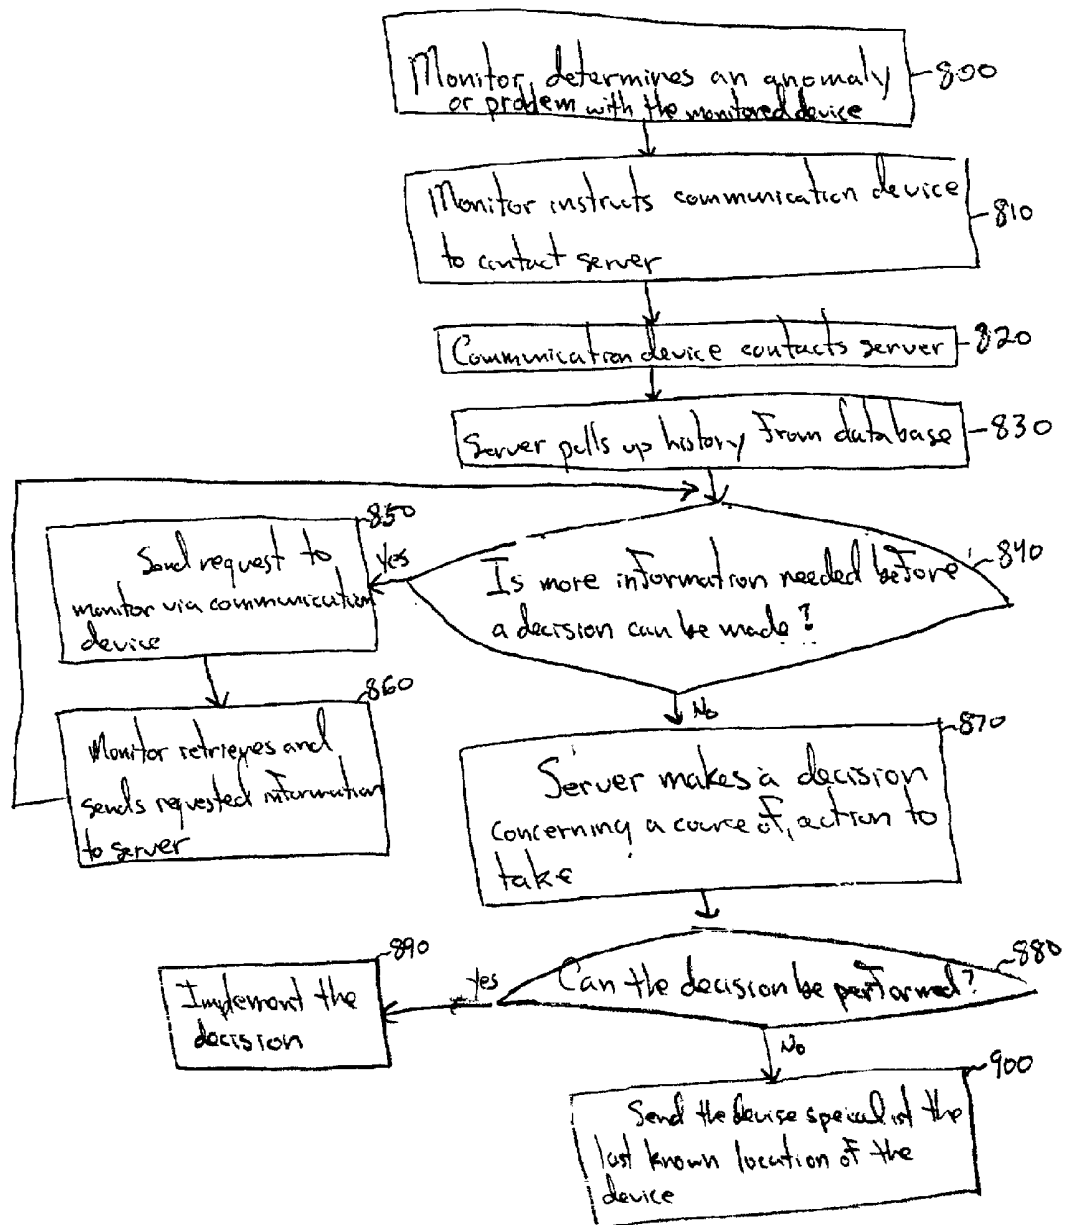 Monitor determines an anomaly
or problem with the monitored device
800
Monitor instructs communication device
to contact server
810
Communication device contacts server
820
Server pulls up history From database
830
Is more information needed before
a decision can be made?
840
Yes
850
Send request to
monitor via communication
device
860
Monitor retrieves and
sends requested information
to server
No
870
Server makes a decision
concerning a course of action to
take
880
Can the decision be performed?
Yes
890
Implement the
decision
No
900
Send the device specialist the
last known location of the
device